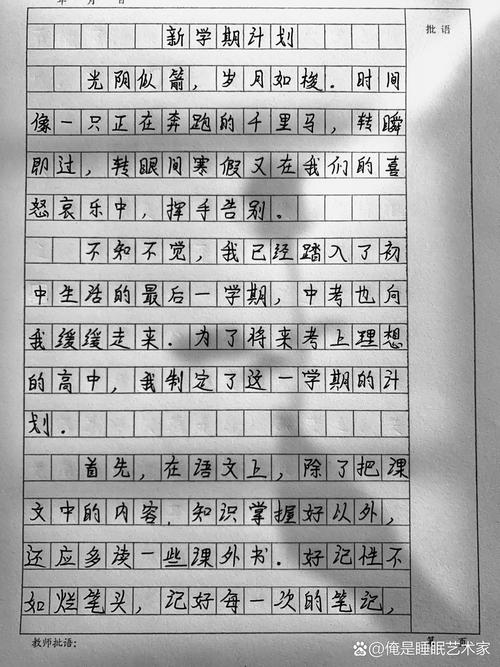 年 月 日
批语
新学期计划
光阴似箭，岁月如梭．时间
像一只正在奔跑的千里马，转瞬
即过，转眼间寒假又在我们的喜
怒哀乐中，挥手告别。
不知不觉，我已经踏入了初
中生活的最后一学期，中考也向
我缓缓走来．为了将来考上理想
的高中，我制定了这一学期的计
划．
首先，在语文上，除了把课
文中的内容．知识掌握好以外，
还应多读一些课外书．好记性不
如烂笔头，记好每一次的笔记，
教师批语：
第 页
@俺是睡眠艺术家